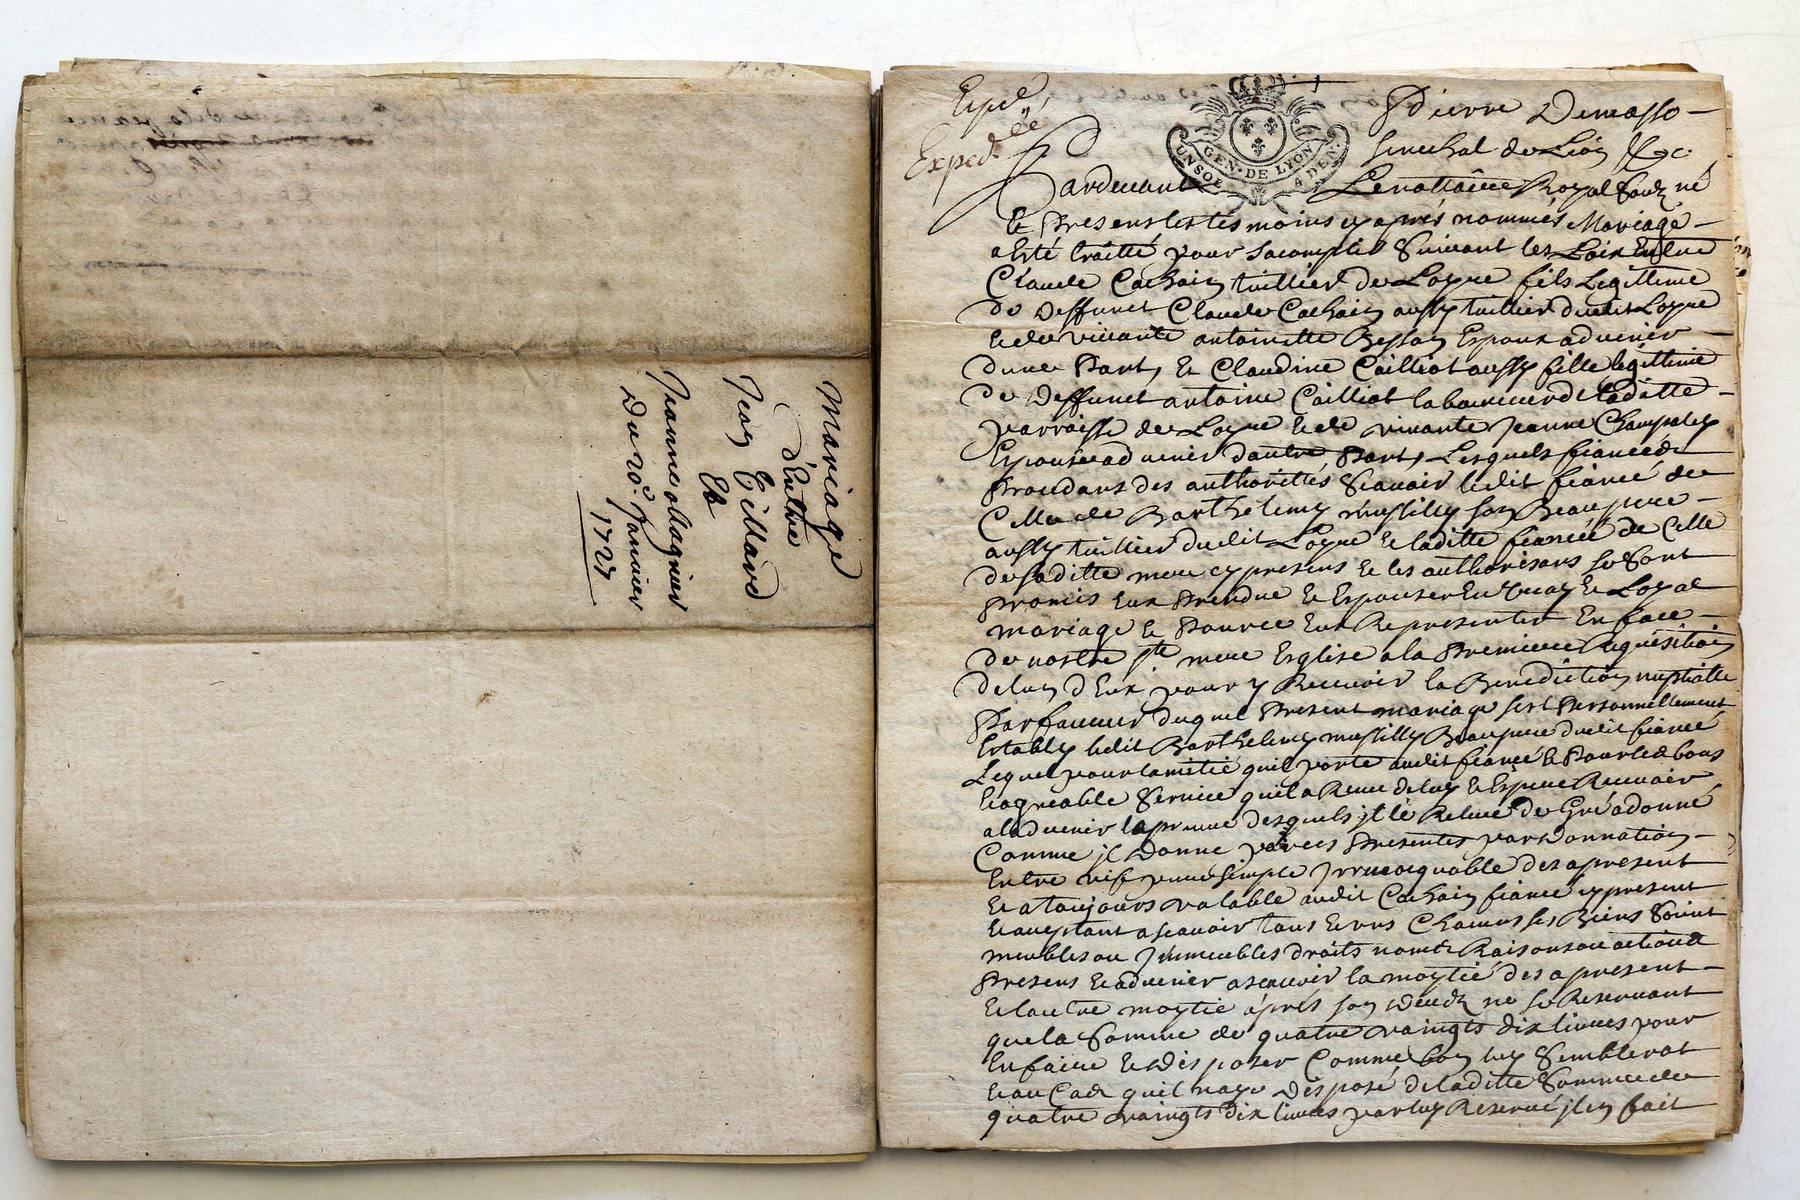 Mariage
d'Entre
Jean Tillard
Et
Jeanne Magnier
Du 20e. Janvier
1727
Expé
Exped. ée
GEN. DE LYON
UN SOL 4 DEN.
Pierre Demasso
Senechal de Lion &c.
Pardevant Le nottaire Royal
Et Presens les tesmoins cy aprés nommés Mariage
a Esté traitté pour sacomplir Suivant les Loix Entre
Claude Cachain tuillier de Loyre fils Legittime
de Deffunct Claude Cachain aussy tuillier dudit Loyre
Et de vivante antoinette Besson Espoux advenir
dune Part, Et Claudine Cailliot aussy fille legittime
de Deffunct antoine Cailliot laboureur de laditte
parroisse de Loyre Et de vivante Jeanne
Espouse advenir dautre Part, Lesquels fiancés
Procedans des authorittés Scavoir ledit fiancé de
Celle de Barthelemy mussilly son Beaupere
aussy tuillier dudit Loyre Et laditte fiancée de Celle
de saditte mere cy presens Et les authorisans se sont
Promis Eux Prendre Et Espouser En vray Et Loyal
mariage Et Pource Eux Representer En face
de nostre ste mere Esglise a la Premiere Requisition
de lun d'Eux pour y Recevoir la Benediction nuptialle
Par faveur duquel Present mariage sest Personnellement
Estably ledit Barthelemy mussilly Beaupere dudit fiancé
Lequel pour lamitié quil porte audit fiancé Et Pour les bons
Et agreable Service quil a Receu de luy Et Espere Recevoir
a ladvenir la preuve desquels il le Releve de Gré a donné
Comme il Donne par ces Presentes par Donnation
Entre vifs pure simple Irrevocquable des a present
Et a toujours valable audit Cachain fiancé cy present
Et acceptant a scavoir tous Et uns Chacuns ses Biens Soient
meubles ou Immeubles droits noms Raisons ou actions
Presens Et advenir a scavoir la moytié des a present
Et lautre moytié aprés son Decedz ne se Reservant
que la Somme de quatre vaingts dix livres pour
En faire Et disposer Comme bon luy Semblerat
Et au Cas quil naye Disposé de laditte Somme de
quatre vaingts dix livres par luy Reservé il en fait